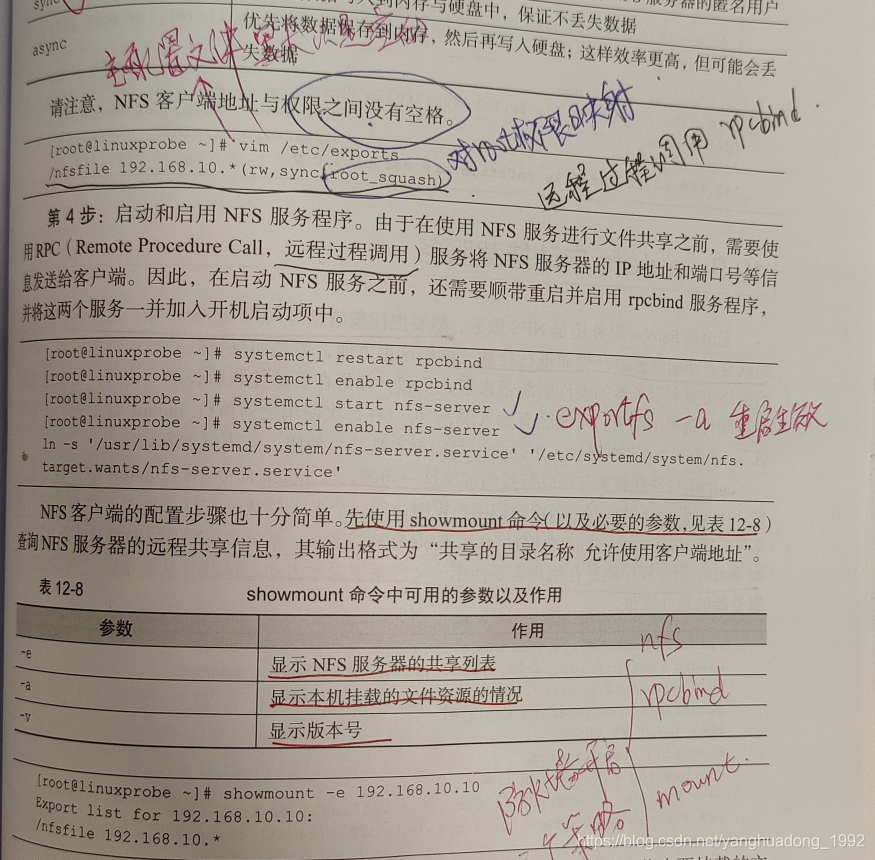 sync
到内存与硬盘中，保证不丢失数据
服务器的匿名用户
async
优先将数据保存到内存，然后再写入硬盘；这样效率更高，但可能会丢
失数据
主配置文件
请注意，NFS 客户端地址与权限之间没有空格。
对root权限映射
远程过程调用 rpcbind.
[root@linuxprobe ~]# vim /etc/exports
/nfsfile 192.168.10.*(rw,sync,root_squash)
第 4 步：启动和启用 NFS 服务程序。由于在使用 NFS 服务进行文件共享之前，需要使
用 RPC（Remote Procedure Call，远程过程调用）服务将 NFS 服务器的 IP 地址和端口号等信
息发送给客户端。因此，在启动 NFS 服务之前，还需要顺带重启并启用 rpcbind 服务程序，
并将这两个服务一并加入开机启动项中。
[root@linuxprobe ~]# systemctl restart rpcbind
[root@linuxprobe ~]# systemctl enable rpcbind
[root@linuxprobe ~]# systemctl start nfs-server
[root@linuxprobe ~]# systemctl enable nfs-server
exportfs -a 重启生效
ln -s '/usr/lib/systemd/system/nfs-server.service' '/etc/systemd/system/nfs.
target.wants/nfs-server.service'
NFS 客户端的配置步骤也十分简单。先使用 showmount 命令（以及必要的参数，见表 12-8）
查询 NFS 服务器的远程共享信息，其输出格式为“共享的目录名称 允许使用客户端地址”。
表 12-8 showmount 命令中可用的参数以及作用
参数 作用
-e 显示 NFS 服务器的共享列表
-a 显示本机挂载的文件资源的情况
-v 显示版本号
nfs
rpcbind
mount.
防火墙开启
[root@linuxprobe ~]# showmount -e 192.168.10.10
Export list for 192.168.10.10:
/nfsfile 192.168.10.*
https://blog.csdn.net/yanghuadong_1992